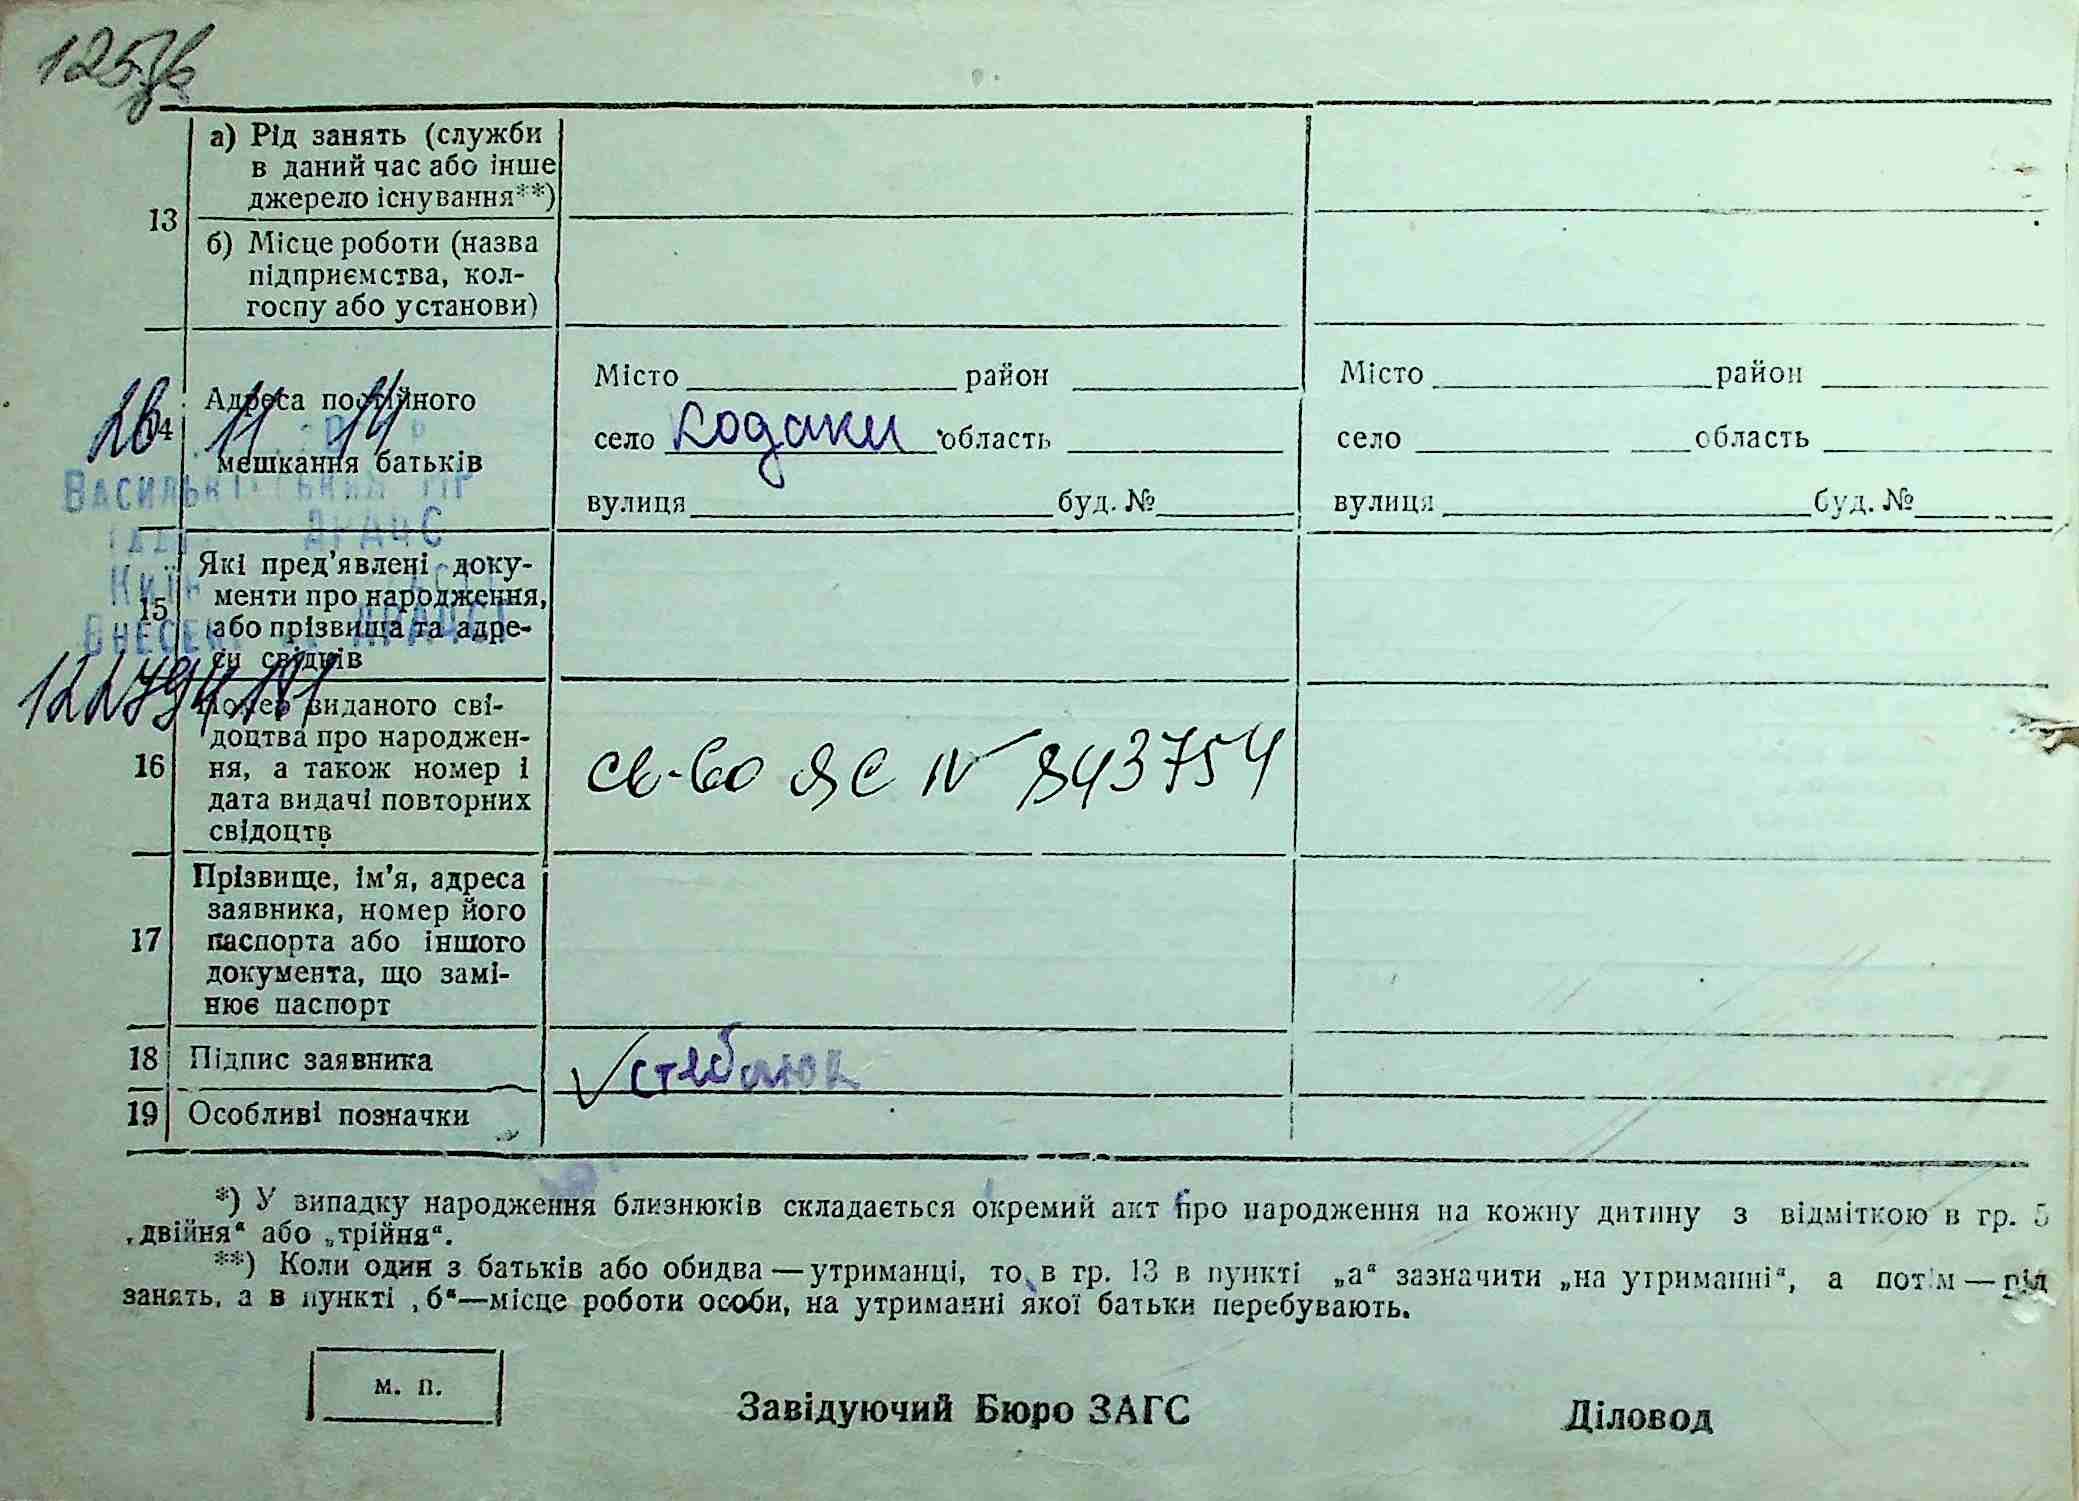 125зв
13
а) Рід занять (служби
в даний час або інше
джерело існування**)
б) Місце роботи (назва
підприємства, кол-
госпу або установи)
14
Адреса постійного
мешкання батьків
Місто район
село Кодаки область
вулиця буд. №
Місто район
село область
вулиця буд. №
26 11 14
Васильківський
ДРАЦС
Внесено ДРАЦСГ
15
Які пред'явлені доку-
менти про народження,
або прізвища та адре-
си свідків
16
Номер виданого сві-
доцтва про народжен-
ня, а також номер і
дата видачі повторних
свідоцтв
св-во ЯС № 843754
17
Прізвище, ім'я, адреса
заявника, номер його
паспорта або іншого
документа, що замі-
нює паспорт
18 Підпис заявника
Стеблюк
19 Особливі позначки
*) У випадку народження близнюків складається окремий акт про народження на кожну дитину з відміткою в гр. 5
„двійня“ або „трійня“.
**) Коли один з батьків або обидва — утриманці, то в гр. 13 в пункті „а“ зазначити „на утриманні“, а потім — рід
занять, а в пункті „б“—місце роботи особи, на утриманні якої батьки перебувають.
м. п.
Завідуючий Бюро ЗАГС Діловод